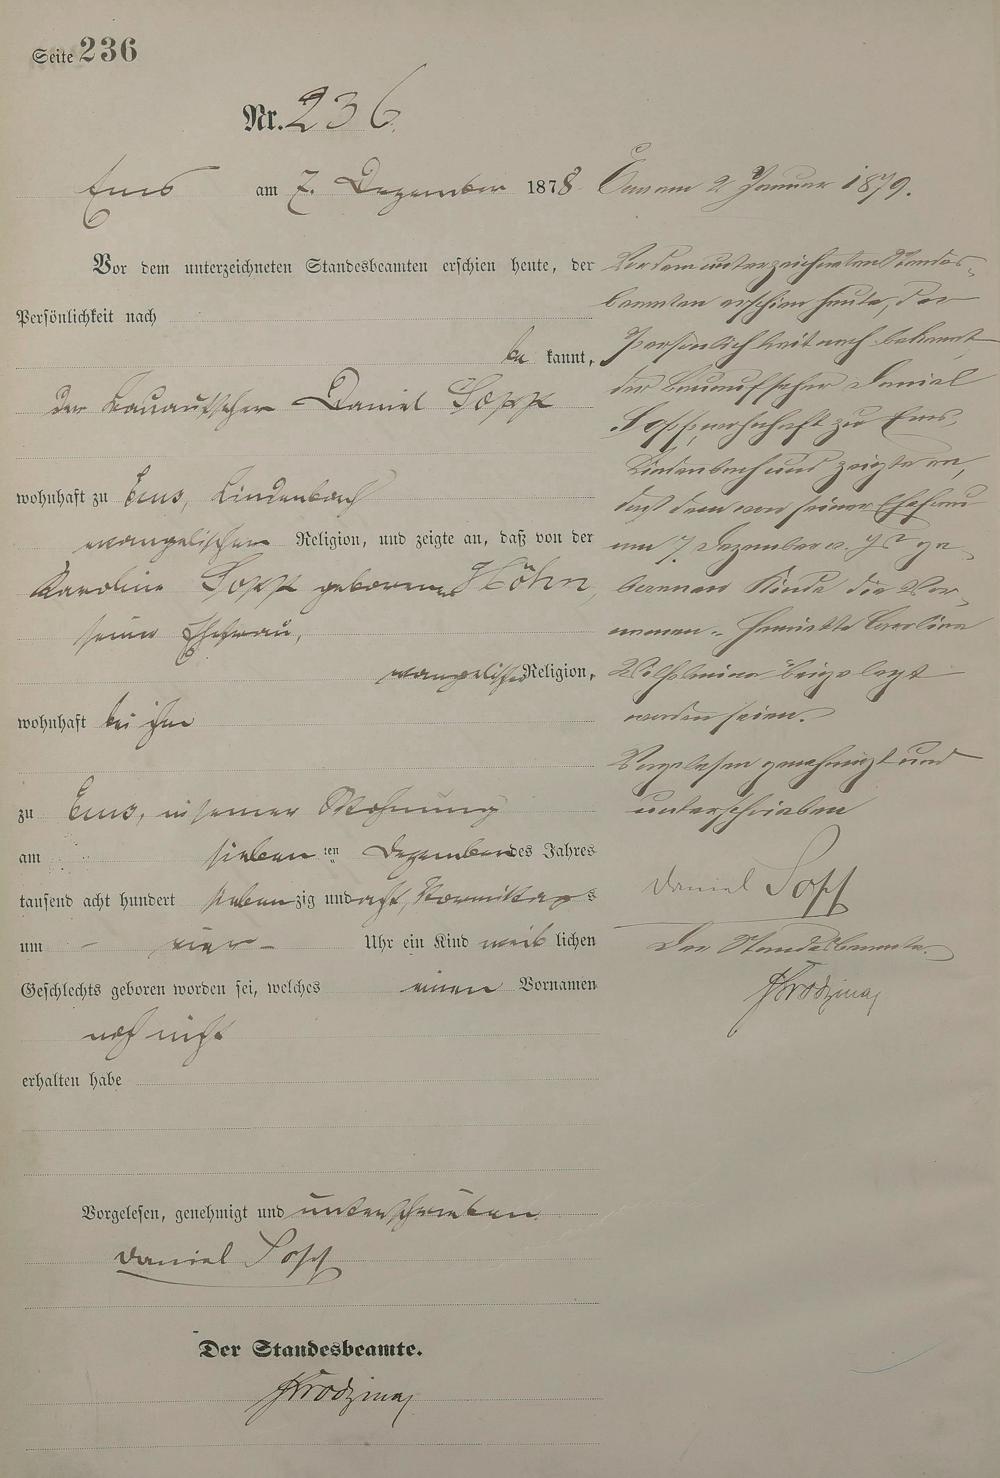 Seite 236
Nr. 236.
Ems am 7. Dezember 1878
Vor dem unterzeichneten Standesbeamten erschien heute, der
Persönlichkeit nach
be kannt,
der Bauaufseher Daniel Sopp
wohnhaft zu Ems, Lindenbach
evangelischer Religion, und zeigte an, daß von der
Karoline Sopp geborenen Höhn,
seiner Ehefrau,
evangelischer Religion,
wohnhaft bei ihm
zu Ems, in seiner Wohnung
am sieben ten Dezember des Jahres
tausend acht hundert siebenzig und acht, Vormittags
um - vier - Uhr ein Kind weib lichen
Geschlechts geboren worden sei, welches einen Vornamen
noch nicht
erhalten habe
Vorgelesen, genehmigt und unterschrieben.
Daniel Sopp
Der Standesbeamte.
Ems am 2 Januar 1879.
Vor dem unterzeichneten Standes-
beamten erschien heute, der
Persönlichkeit nach bekannt
der Bauaufseher Daniel
Sopp, wohnhaft zu Ems,
Lindenbach und zeigte an,
daß dem von seiner Ehefrau
am 7. Dezember v. Js ge-
borenen Kinde die Vor-
namen - Henriette Caroline
Wilhelmine beigelegt
worden seien.
Vorgelesen genehmigt und
unterschrieben
Daniel Sopp
Der Standesbeamte.